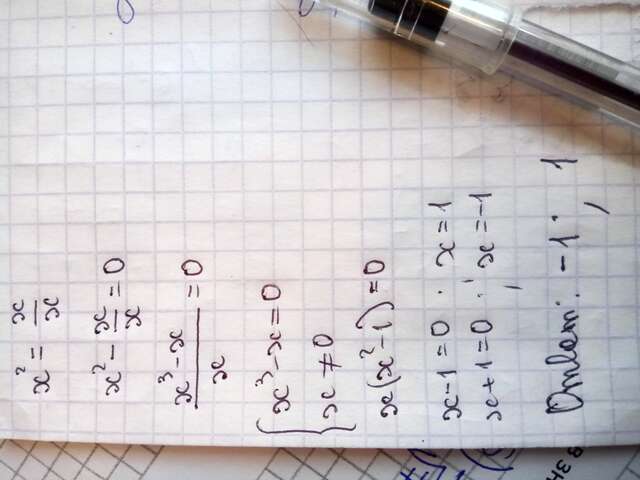 x² = x/x
x² - x/x = 0
(x³ - x)/x = 0
{ x³ - x = 0
x ≠ 0
x(x² - 1) = 0
x - 1 = 0 ; x = 1
x + 1 = 0 ; x = -1
Ответ: -1 ; 1